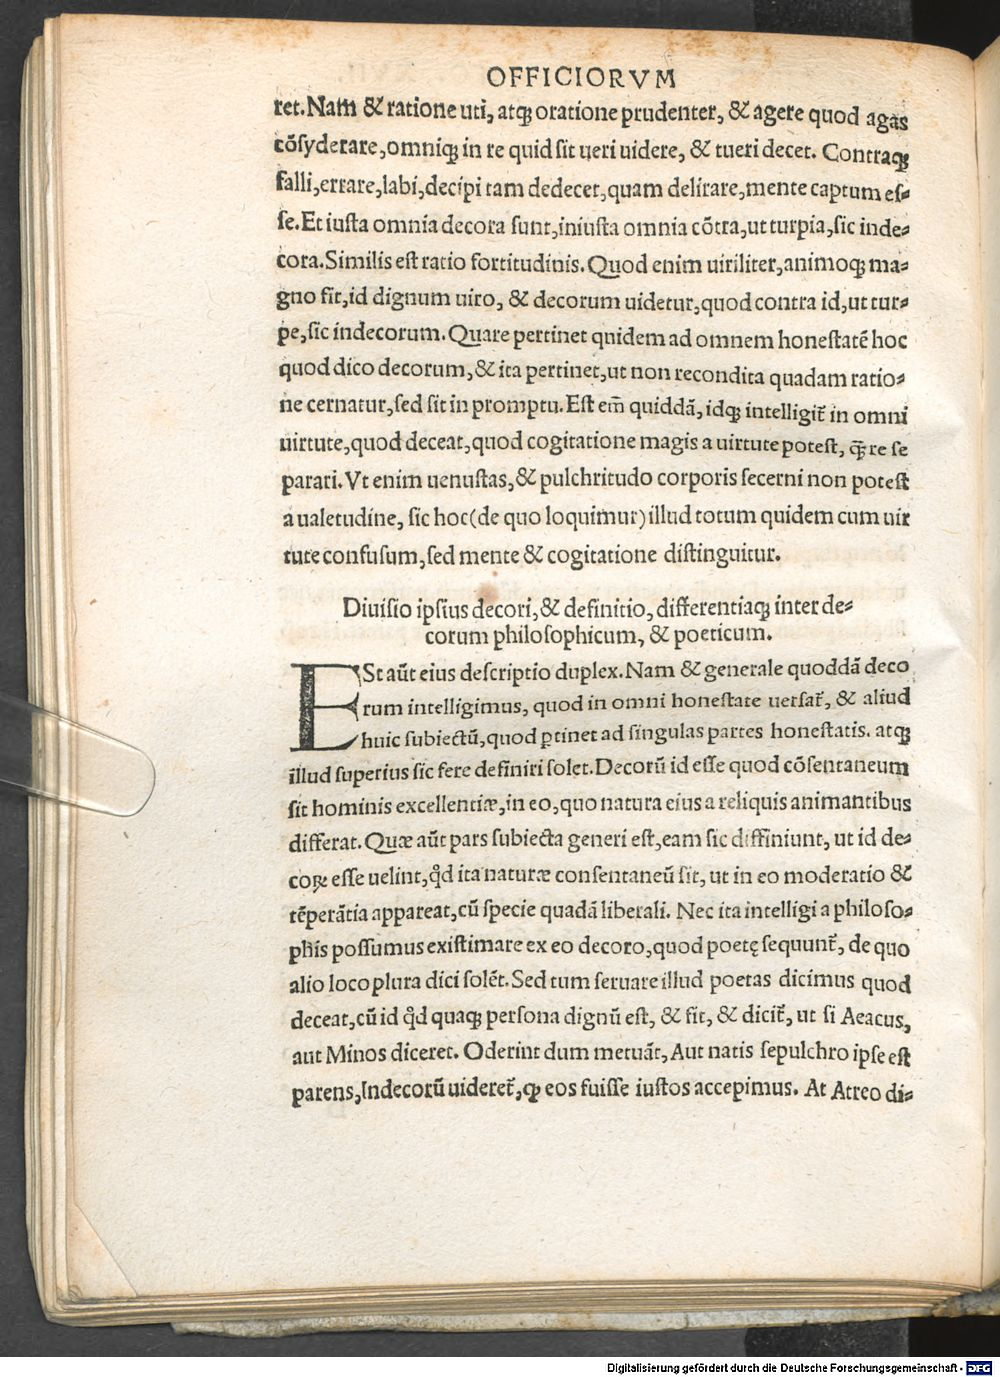 OFFICIORVM
ret. Nam & ratione uti, atqꝫ oratione prudenter, & agere quod agas
cõſyderare, omniqꝫ in re quid ſit ueri uidere, & tueri decet. Contraqꝫ
falli, errare, labi, decipi tam dedecet, quam delirare, mente captum eſ⸗
ſe. Et iuſta omnia decora ſunt, iniuſta omnia cõtra, ut turpia, ſic inde⸗
cora. Similis eſt ratio fortitudinis. Quod enim uiriliter, animoqꝫ ma⸗
gno fit, id dignum uiro, & decorum uidetur, quod contra id, ut tur⸗
pe, ſic indecorum. Quare pertinet quidem ad omnem honeſtatẽ hoc
quod dico decorum, & ita pertinet, ut non recondita quadam ratio⸗
ne cernatur, ſed ſit in promptu. Eſt em̃ quiddã, idqꝫ intelligit̃ in omni
uirtute, quod deceat, quod cogitatione magis a uirtute poteſt, q̃ꝫ re ſe
parari. Vt enim uenuſtas, & pulchritudo corporis ſecerni non poteſt
a ualetudine, ſic hoc (de quo loquimur) illud totum quidem cum uir
tute confuſum, ſed mente & cogitatione diſtinguitur.
Diuiſio ipſius decori, & definitio, differentiaqꝫ inter de⸗
corum philoſophicum, & poeticum.
ESt aũt eius deſcriptio duplex. Nam & generale quoddã deco
rum intelligimus, quod in omni honeſtate uerſat̃, & aliud
huic ſubiectũ, quod ꝑtinet ad ſingulas partes honeſtatis. atqꝫ
illud ſuperius ſic fere definiri ſolet. Decorũ id eſſe quod cõſentaneum
ſit hominis excellentiæ, in eo, quo natura eius a reliquis animantibus
differat. Quæ aũt pars ſubiecta generi eſt, eam ſic diffiniunt, ut id de⸗
coꝝ eſſe uelint, qd̃ ita naturæ conſentaneũ ſit, ut in eo moderatio &
tẽperãtia appareat, cũ ſpecie quadã liberali. Nec ita intelligi a philoſo⸗
phis poſſumus exiſtimare ex eo decoro, quod poetę ſequunt̃, de quo
alio loco plura dici ſolẽt. Sed tum ſeruare illud poetas dicimus quod
deceat, cũ id qd̃ quaqꝫ perſona dignũ eſt, & fit, & dicit̃, ut ſi Aeacus,
aut Minos diceret. Oderint dum metuãt, Aut natis ſepulchro ipſe eſt
parens, Indecorũ uideret̃, ꝙ eos fuiſſe iuſtos accepimus. At Atreo di⸗
Digitalisierung gefördert durch die Deutsche Forschungsgemeinschaft - DFG